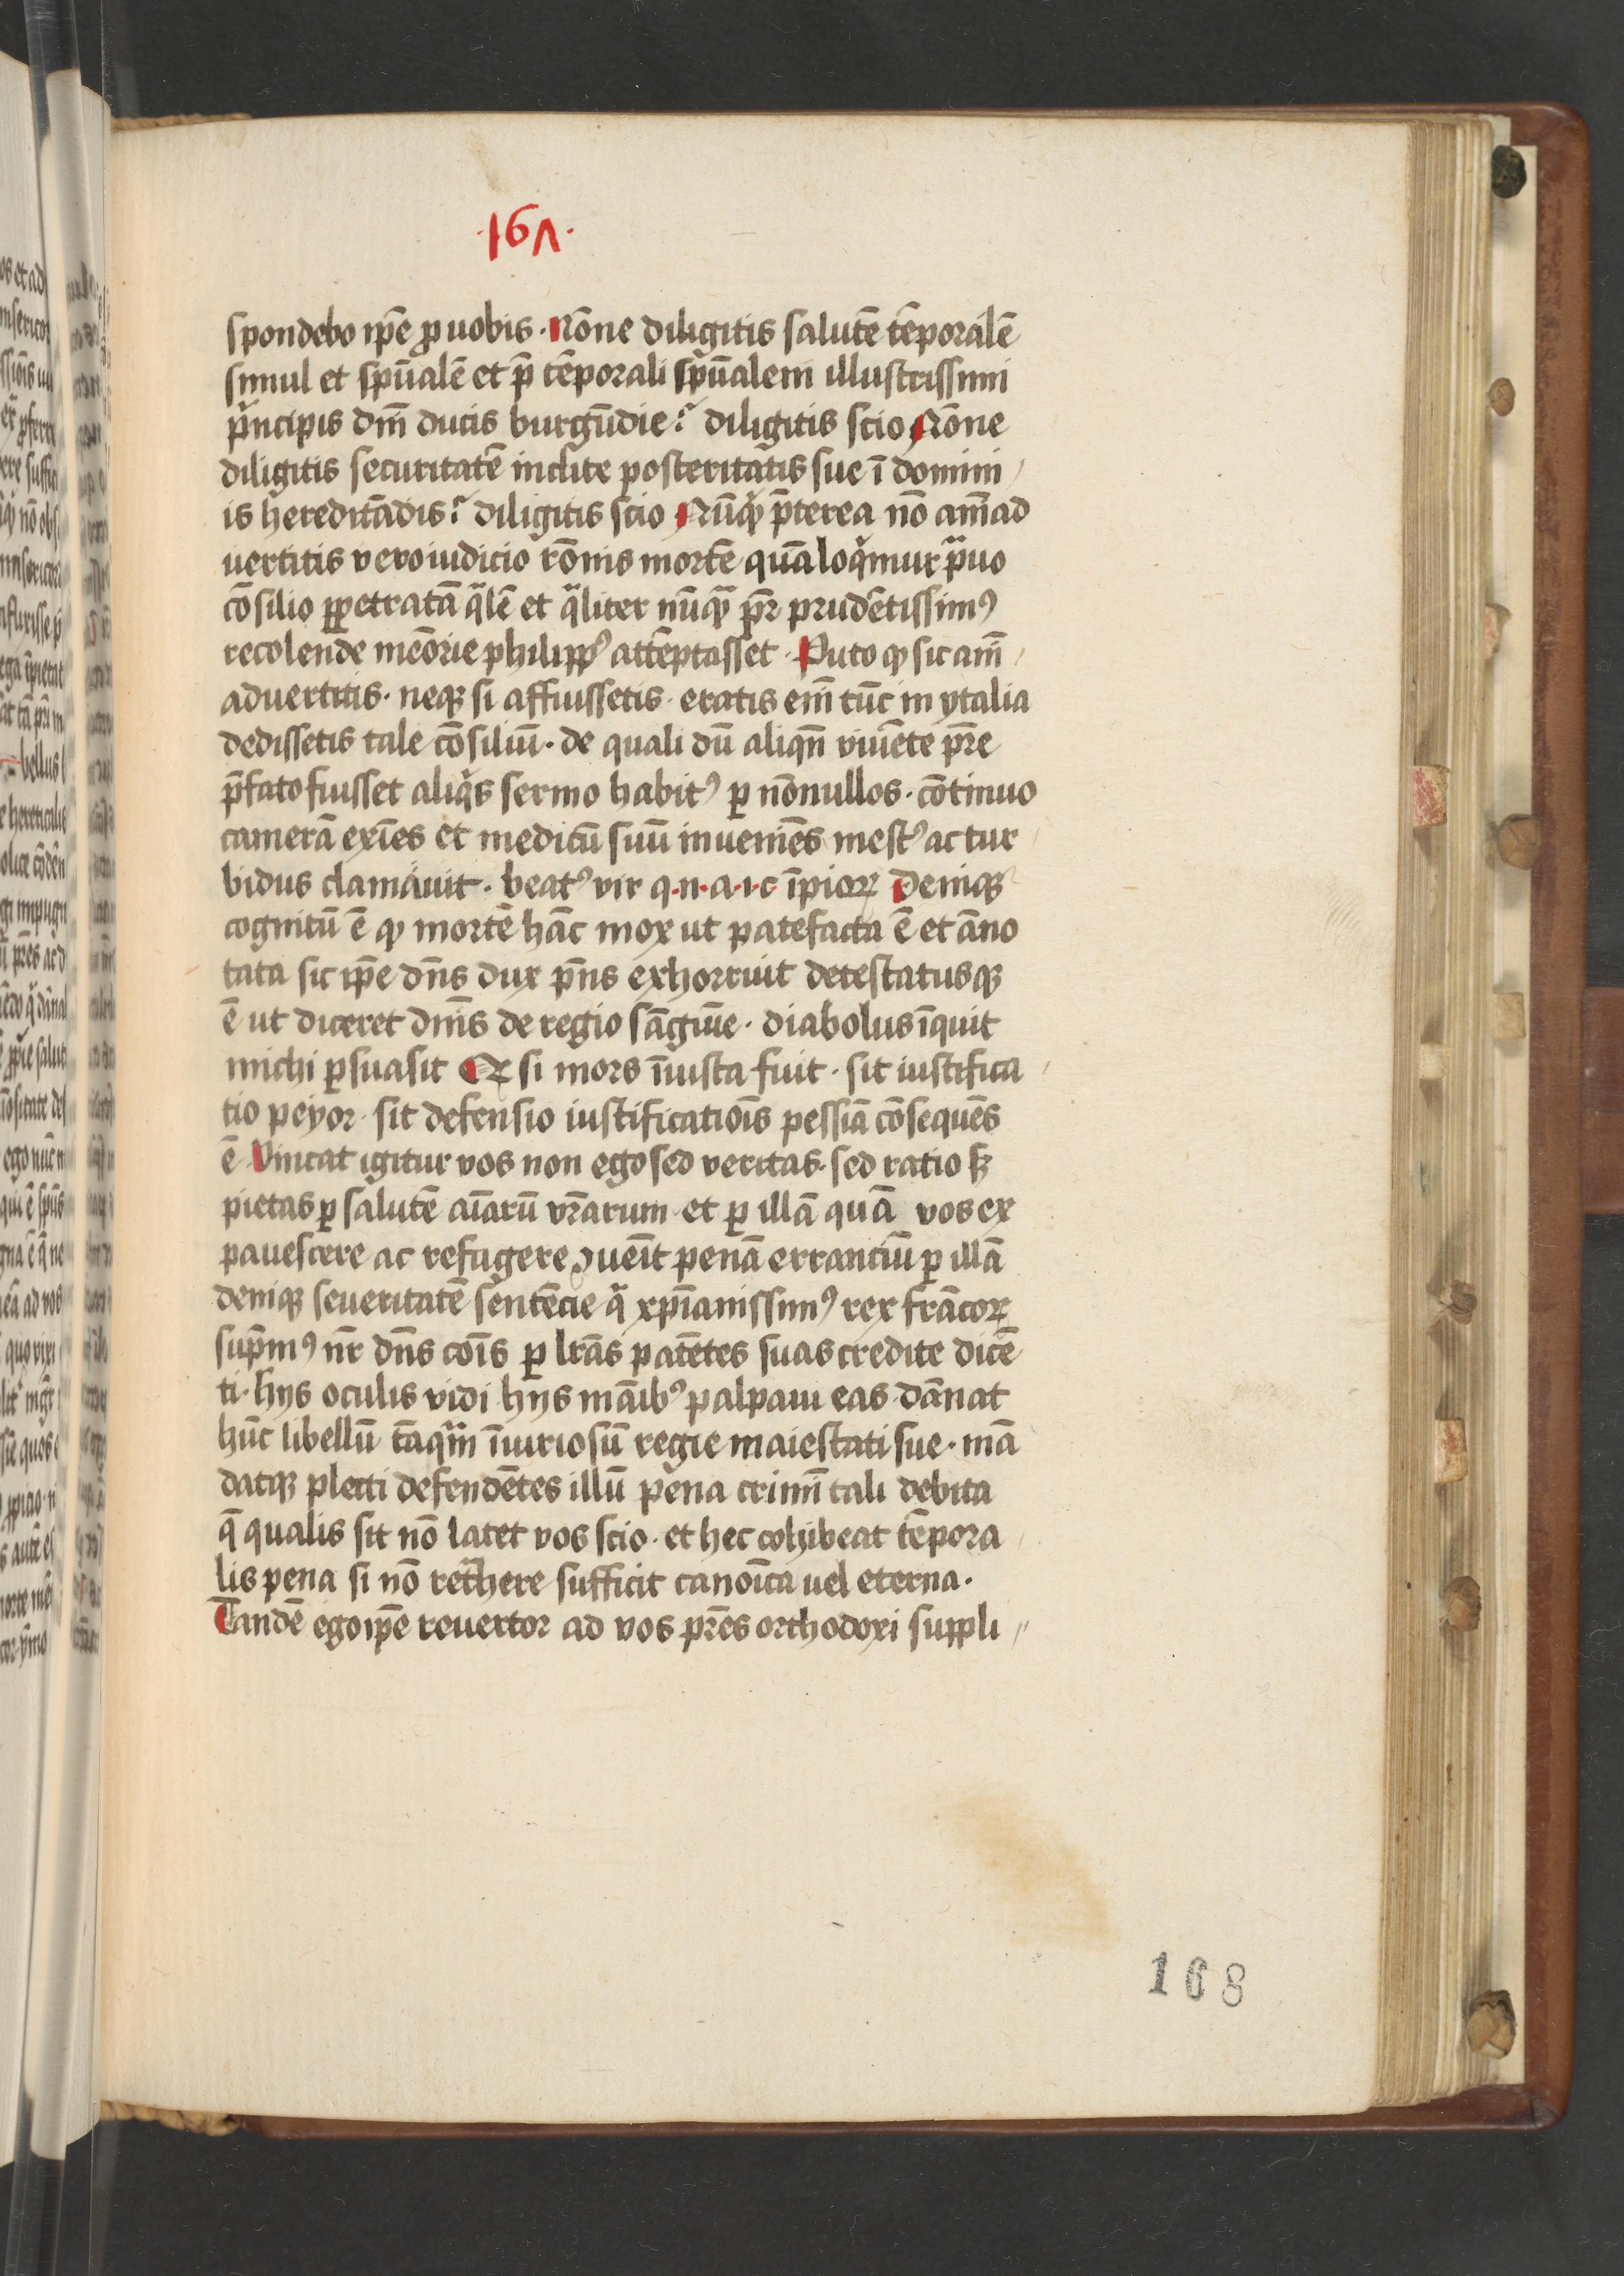 ·16ʌ·
spondebo ip̄e ꝓ uobis · Nōne diligitis salutē tēporalē
simul et sp̄ualē et p̄ tēporali sp̄ualem illustrissimi
pͥncipis dn̄i ducis burgūdie? diligitis scio Nōne
diligitis securitatē inclite posteritatis sue ī domini
is hereditādis? diligitis scio Nūqͩ p̄terea nō aīmad
uertitis vero iudicio rōnis mortē quā loqͥmur pͣuo
cōsilio ꝑpetratā qͣlē et qͣliter nūqͣ pr̄ prudētissimꝰ
recolende memōrie philippꝰ attēptasset · Puto ꝙ sic aīm
advertitis · neqꝫ si affuissetis · eratis em̄ tūc in ytalia
dedissetis tale cōsiliū · de quali dū aliqn̄ viuēte pr̄e
p̄fato fuisset aliqͥs sermo habitꝰ ꝑ nōnullos · cōtinuo
camerā exīes et medicū suū inueniēs mestꝰ ac tur
bidus clamauit · beatꝰ vir q·n·a·i·c īpioꝝ Deniqꝫ
cognitū ē ꝙ mortē hāc mox ut patefacta ē et āno
tata sic ip̄e dn̄s dux pn̄s exhorruit detestatusqꝫ
ē ut diceret dn̄is de regio sāguīe · diabolus īquit
michi ꝑsuasit Et si mors īiusta fuit · sit iustifica
tio peyor · sit defensio iustificatiōis pessīa cōsequēs
ē Vincat igitur vos non ego sed veritas · sed ratio sꝫ
pietas ꝑ salutē aīarū vr̄arum et ꝑ illā quā vos ex
pauescere ac refugere ↄuenit penā errantiū ꝑ illā
deniqꝫ seueritatē sentēcie qͣ xp̄ianissimꝰ rex frācoꝝ
sup̄mꝰ nr̄ dn̄s cōis ꝑ lrās patētes suas credite dicē
ti · hijs oculis vidi hijs māibꝰ palpaui eas dānat
hūc libellū tāqͣm īiuriosū regie maiestati sue · mā
datqꝫ plecti defendētes illū pena crimī tali debita
q̄ qualis sit nō latet vos scio · et hec cohibeat tēpora
lis pena si nō retͣhere sufficit canoīca uel eterna ·
Tandē ego ip̄e reuertor ad vos pr̄es orthodoxi suppli
168